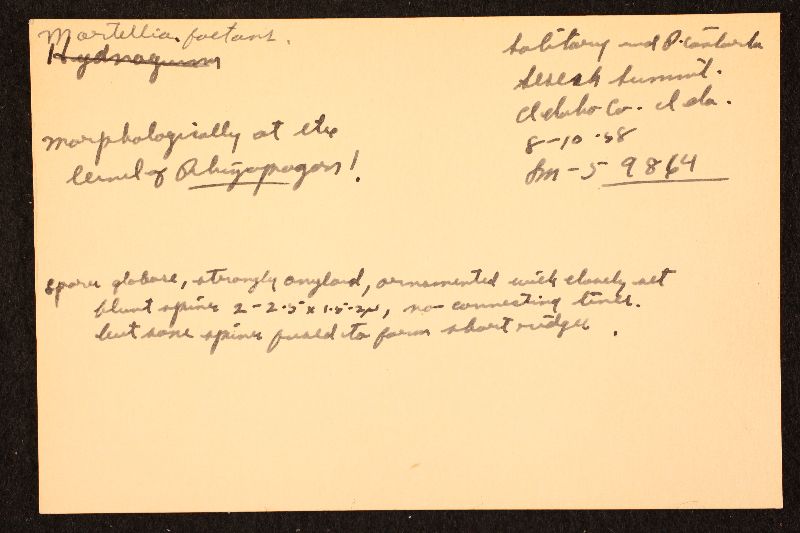 Martellia foetans.
Hydnogium
morphologically at the
level of Rhizopogon!
Solitary under P. contorta
Seven Summit.
Idaho Co. Ida.
8-10-58
Sm-59864
Spores globose, strongly amyloid, ornamented with closely set
blunt spines 2-2.5 x 1.5-2µ, no connecting lines.
but some spines fused to form short ridges.